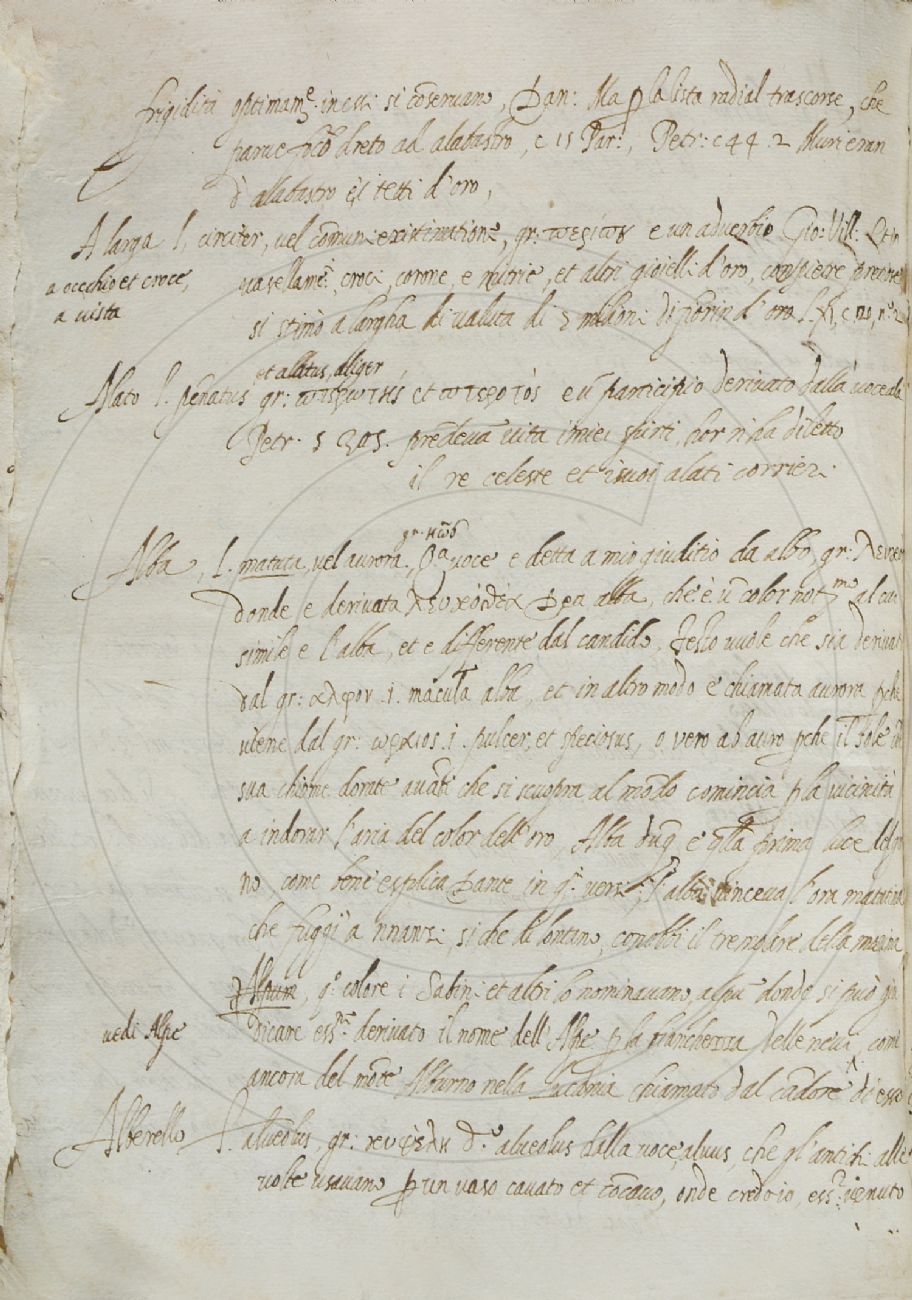 frigidità optimam.e in essi si cõseruano, Dan: Ma p la lista radial trascorse, che
parue foco dreto ad alabastro, c 15 Par:, Petr: c 44 : 2 Muri eran
d'alabastro e i tetti d'oro,
A larga l, circiter, vel comun: existimatione, gr: e un aduerbio Gio: Vill:
a occchio et croce,
uasellame, croci, corone, e mitrie, et altri gioielli d'oro, con pietre pretiose
a uista
si stimò a largha di ualuta di 5 milion: di fiorin d'oro l. XI, c, 20, n.o 2
et allatus, aliger,
Alato l. pẽnatus gr: et e ũ participio deriuato dalla uoce ala
Petr. s 205. prẽdeuã uita i miei spirti, hor n'ha diletto
il re celeste et i suoi alati corrieri.
gr. ἠὼς
Alba, l. matuta, vel aurora, uoce e detta a mio giuditio da albo, gr:
donde e deriuata Dea alba, che è ũ color not.mo al cui
simile e l'alba, et e differente dal candido, Festo vuole che sia deriuat
dal gr: αλφον .i. macula alba, et in altro modo e chiamata aurora pche
uiene dal gr: ωραιος .i. pulcer, et speciosus, o, vero ab auro pche il Sole
sua chiome dorate auãti che si scuopra al mõdo comincia p la uicinità
a indorar l'aria del color dell'oro, Alba dũq e qlla prima luce del
no, come bene esplica Dante in q.i versi: l'alba vinceua l'ora matutina
che fuggi'a innanzi si che di lontano, conobbi il tremolare della marina
Alpum, q.o colore i Sabini et altri lo nominauano, alpũ donde si può giu
vedi Alpe
dicare ess.r deriuato il nome dell'Alpe p la bianchezza delle neui, come
ancora del mõte Alburno nella Lucania chiamato dal cãdore di esso
Alberello l. alueolus, gr: d.o alueolus dalla uoce, aluus, che gl'antichi alle
uolte usauano p un uaso cauato et cõcauo, onde credo io, ess.r uenuto